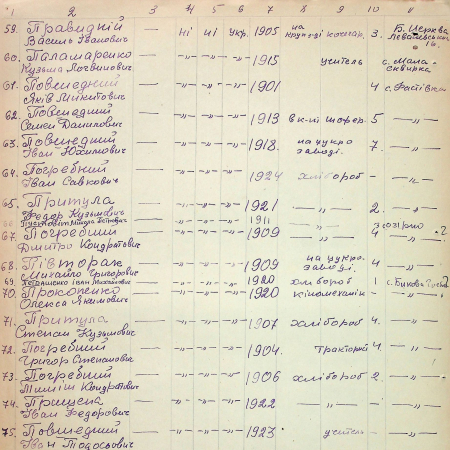 1 2 3 4 5 6 7 8 9 10 11
59. Правидний Василь Іванович — ні ні укр. 1905 на кочегар. 3. Б. Церква
60. Паламаренко Кузьма Логвинович — -"- -"- -"- 1915 учитель с. Мала-сквирка
61. Повшедний Яків Микитович — -"- -"- -"- 1901 4 с. Фастівка
62. Повшедний Семен Данилович — -"- -"- -"- 1913 шофер. 5 -"-
63. Повшедний Іван Юхимович — -"- -"- -"- 1918. на цукро заводі. 7. -"-
64. Погребний Іван Савкович — -"- -"- -"- 1924 хлібороб — -"-
65. Притула Федор Кузьмович — -"- -"- -"- 1921 -"- 2. -"-
66. Микола Петрович 1911
67. Погребний Дмитро Кондратович — -"- -"- -"- 1909 -"- 4 -"-
68. Півторак Михайло Григорович — -"- -"- -"- 1909 на цукро. заводі. 4 -"-
69. Іван Михайлович 1920 хлібороб 1
70. Прокопенко Олекса Якимович — -"- -"- -"- 1920 кіномеханік -"- -"-
71. Притула Степан Кузьмович — -"- -"- -"- 1907 хлібороб 4. -"-
72. Погребний Григор Степанович — -"- -"- -"- 1904. тракторий 4 -"-
73. Погребний Кондратович — -"- -"- -"- 1906 хлібороб 2. -"-
74. Прищепа Іван Федорович — -"- -"- -"- 1922 -"- — -"-
75. Повшедний Іван — -"- -"- -"- 1923 учитель -"-